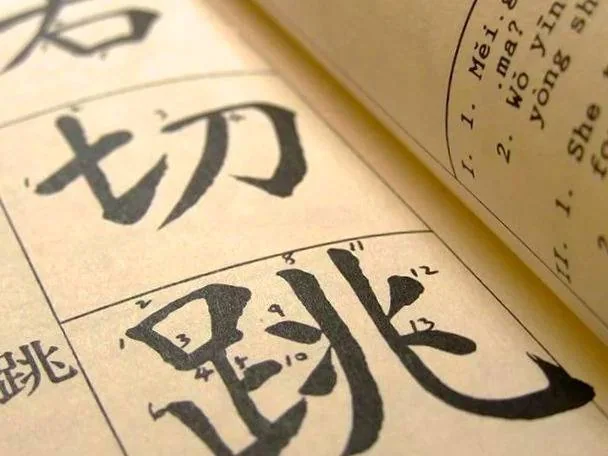 切
1 2 3 4
跳
1 2 3 4 5 6 8 9 10 11 12 13
跳
I. 1. Měi
ma?
2. Wǒ yīn
yòng sh
II. 1. She